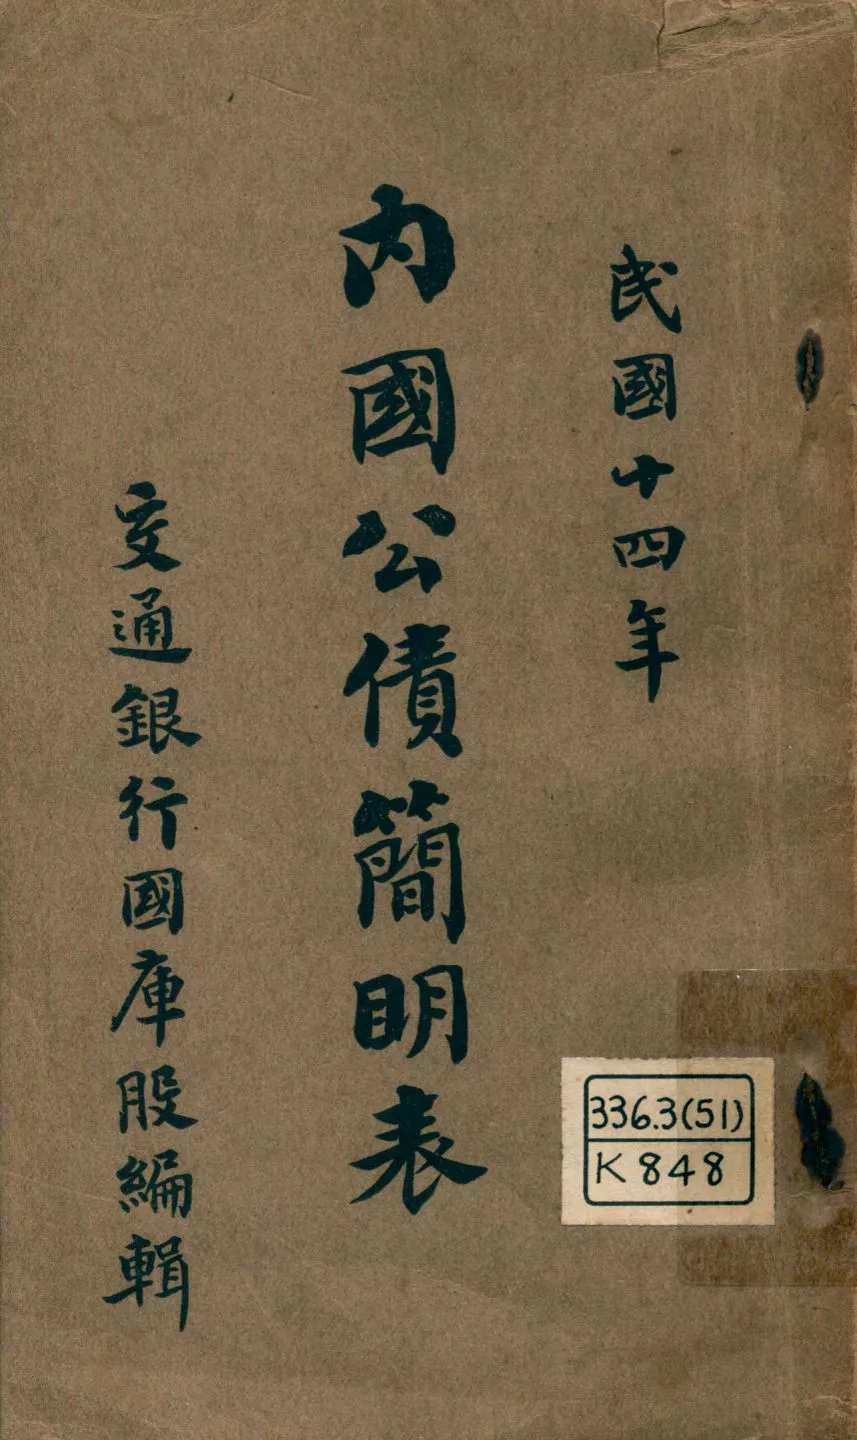 民國十四年
內國公債簡明表
交通銀行國庫股編輯
336.3(51)
K848